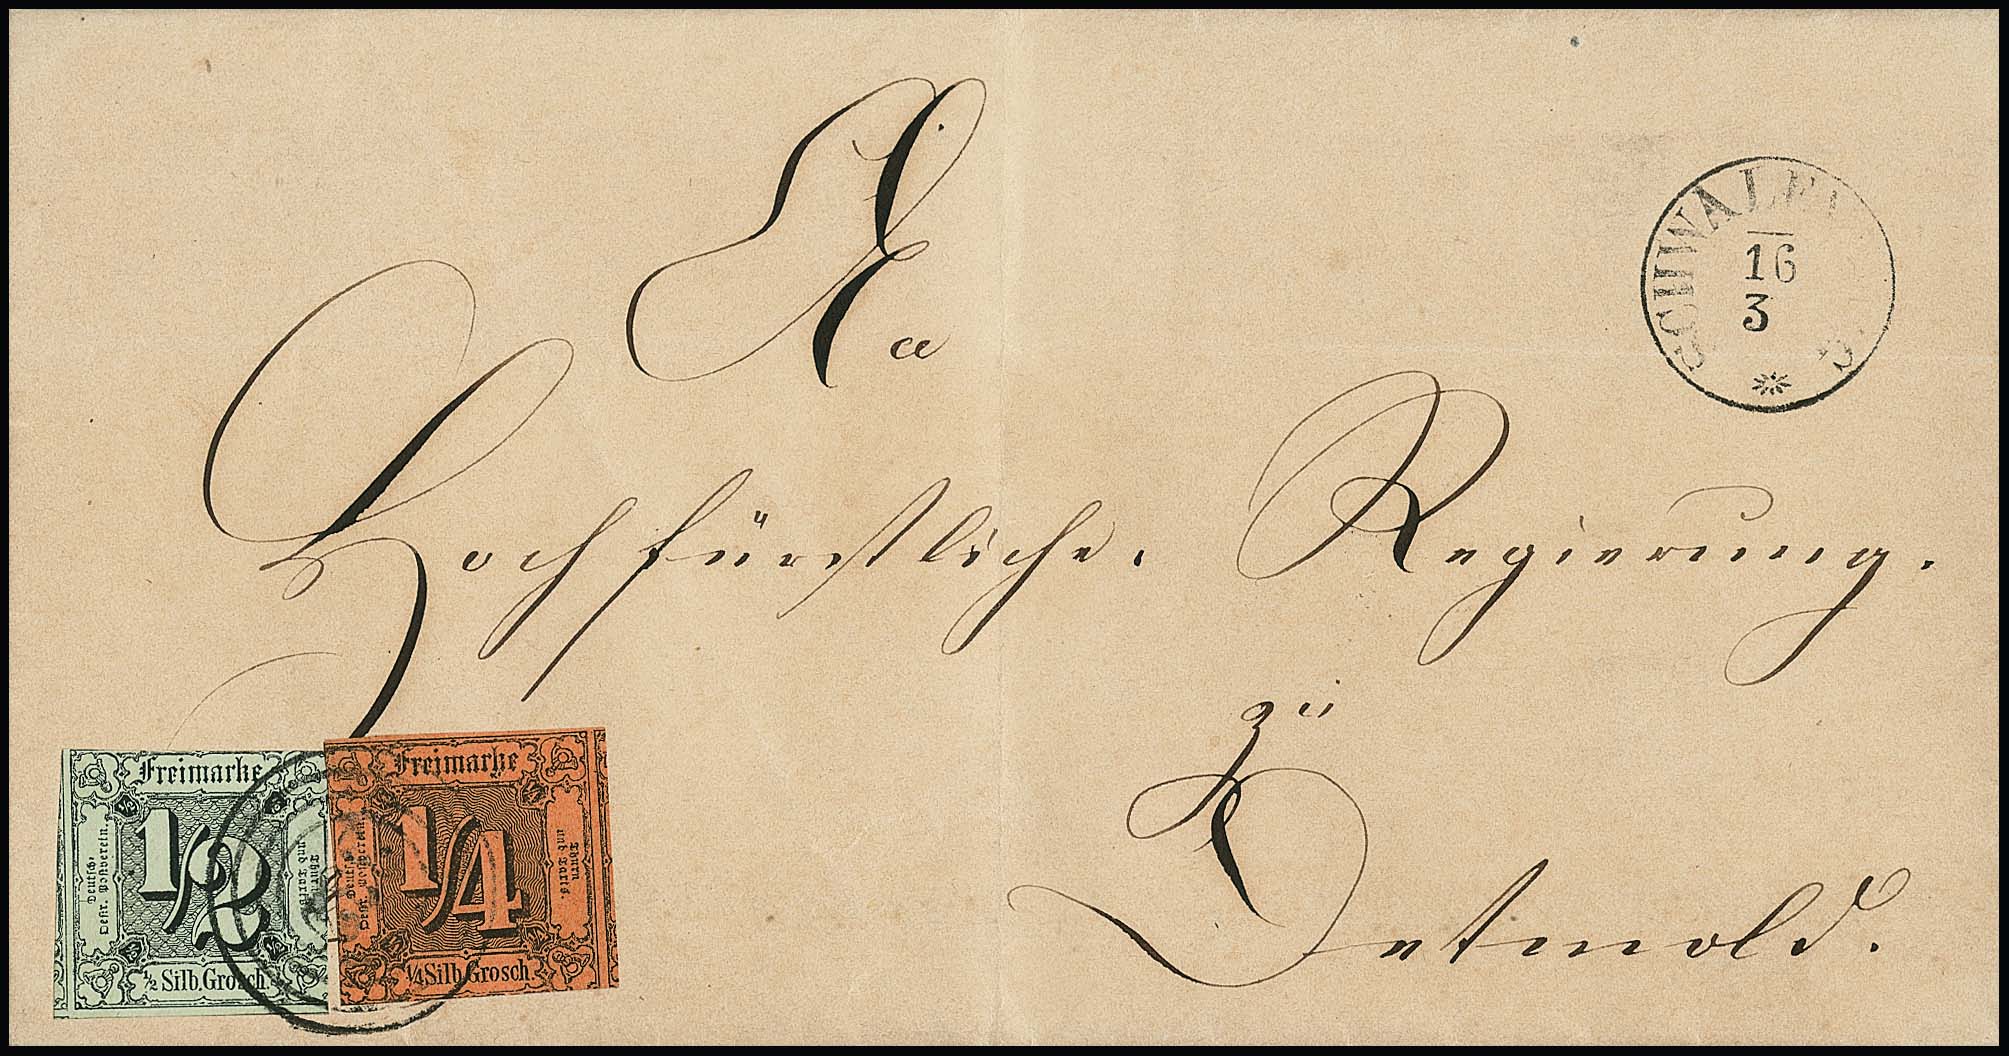 An
Hochfürstliche. Regierung.
zu
Detmold.
16
3
Freimarke
Deutsch.
Oestr. Postverein.
1/2
Thurn
und Taxis
1/2 Silb. Grosch.
Freimarke
Deutsch.
Oestr. Postverein.
1/4
Thurn
und Taxis.
1/4 Silb. Grosch.